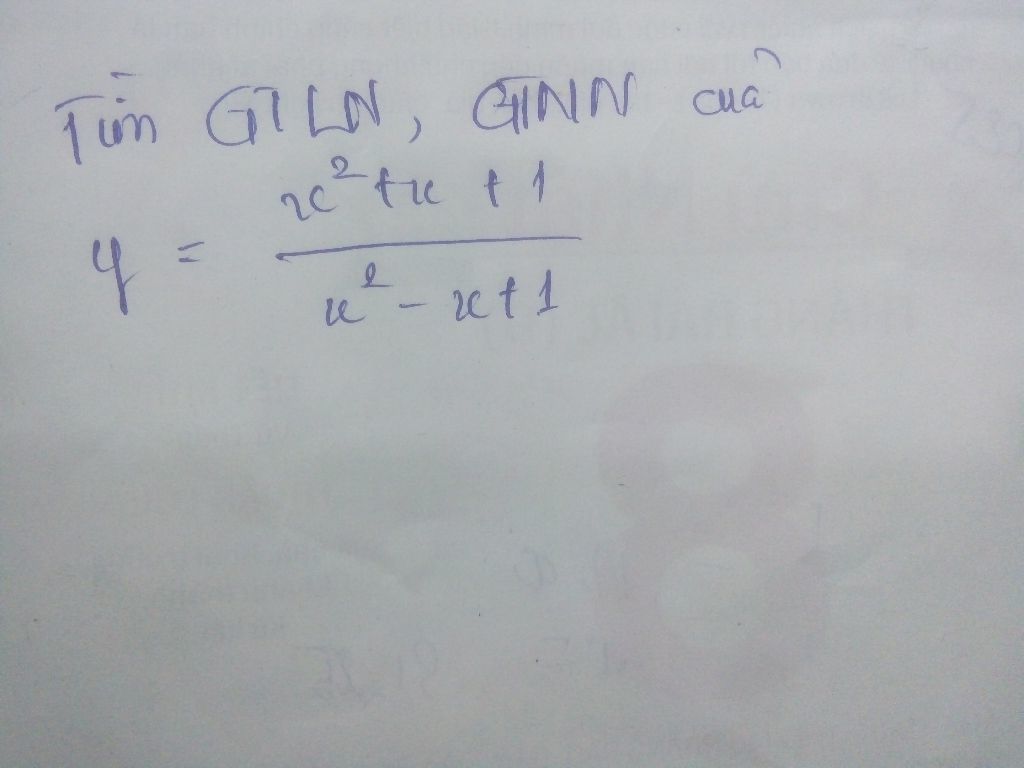 Tìm GTLN, GTNN của
y = \frac{x^2 + x + 1}{x^2 - x + 1}